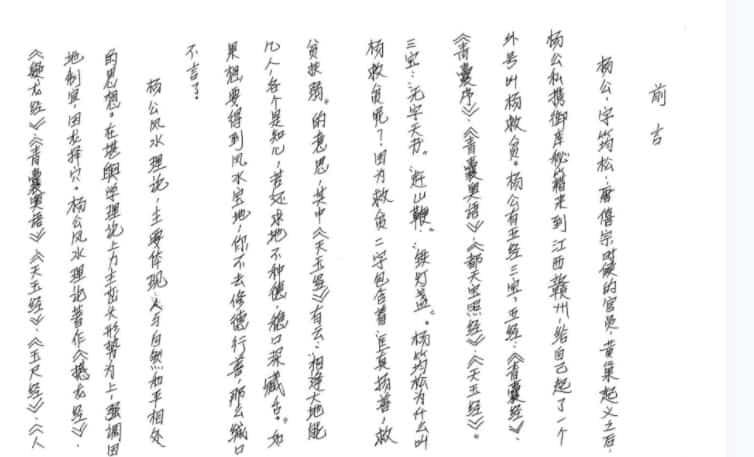 前言
杨公,字筠松,唐僖宗时候的官员,黄巢起义之后,
杨公私携御库秘籍来到江西赣州,给自己起了一个
外号叫杨救贫。杨公有五经三宝,五经:《青囊经》、
《青囊序》、《青囊奥语》、《都天宝照经》、《天玉经》。
三宝:“无字天书”。“赶山鞭”。“绿灯盏”。杨筠松为什么叫
杨救贫呢?因为救贫二字包含着“匡真扬善,救
贫扶弱”。的意思,其中《天玉经》有云:“相逢大地能
几人,各个是知心,若还求地不种德,稳口深藏舌”。如
果想要得到风水宝地,你不去修德行善,那么缄口
不言了。
杨公风水理论,主要体现“人与自然和平相处
的思想。在堪舆学理论上力主峦头形势为上,强调因
地制宜,因龙择穴。杨公风水理论著作《撼龙经》、
《疑龙经》、《青囊奥语》、《天玉经》、《玉尺经》、《人